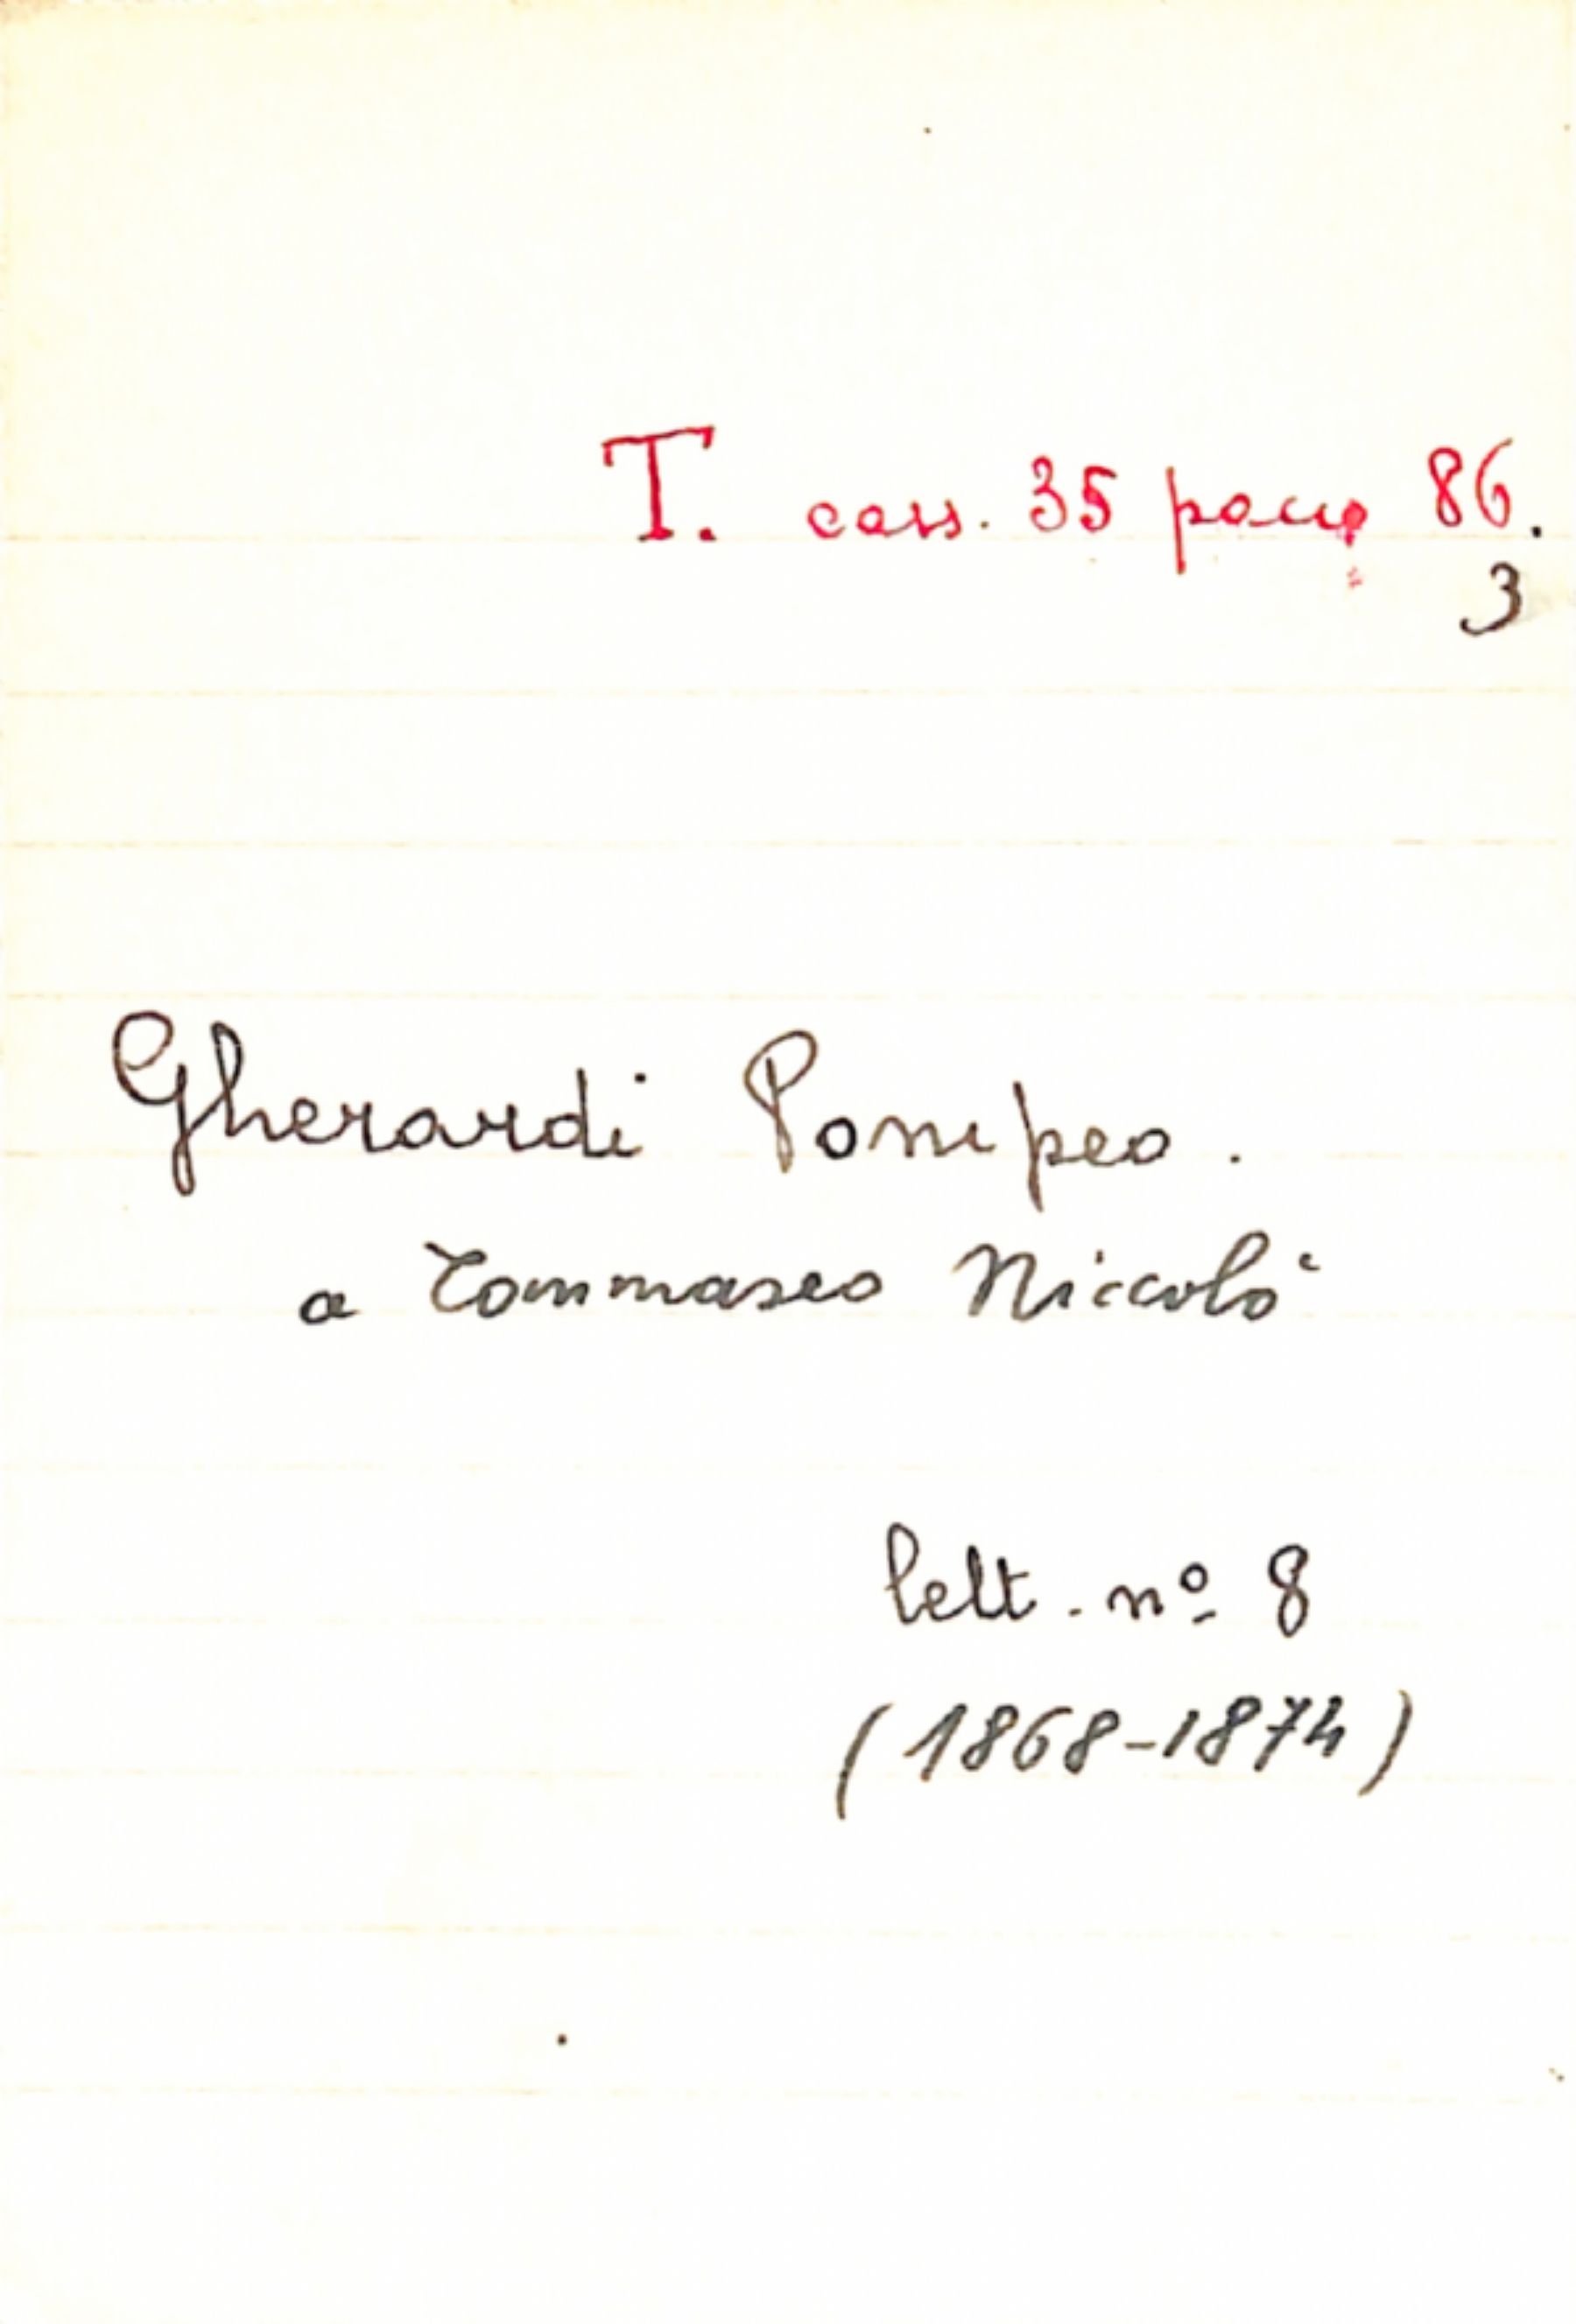 T. cass. 35 pacco 86.
3
Gherardi Pompeo.
a Tommaseo Niccolò
lett. nº 8
(1868-1874)